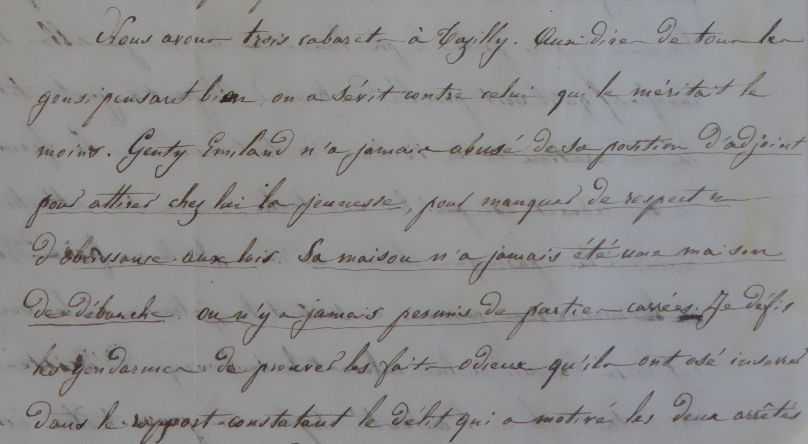 Nous avons trois cabarets à Tazilly. Aux dires de tous les
gens pensant bien on a sévit contre celui qui le méritait le
moins. Genty Emiland n'a jamais abusé de sa position d'adjoint
pour attirer chez lui la jeunesse, pour manquer de respect
d'obéissance aux lois. Sa maison n'a jamais été une maison
de débauche. on n'y a jamais permis de parties carrées. Je défis
les gendarmes de prouver les faits odieux qu'ils ont osé inserer
dans le rapport constatant le délit qui a motivé les deux arrêtés